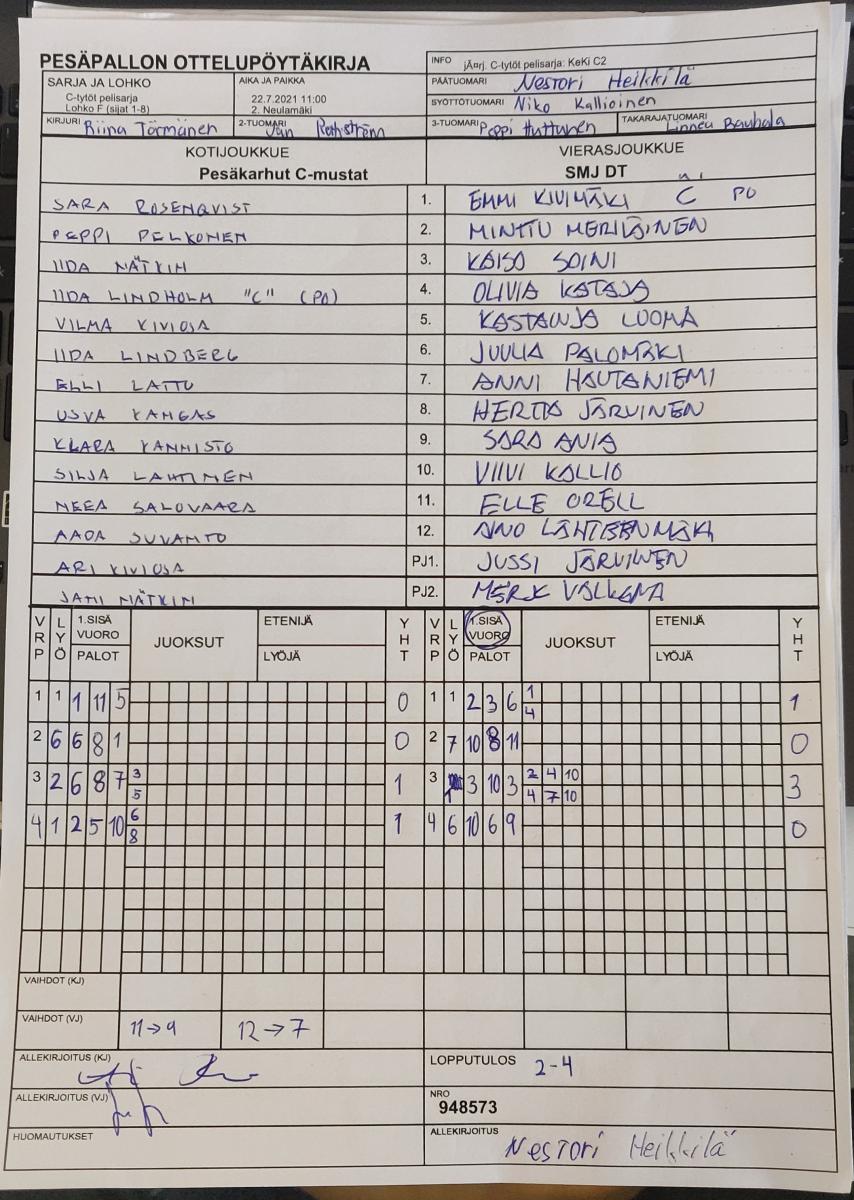 PESÄPALLON OTTELUPÖYTÄKIRJA
INFO jÄnrj. C-tytöt pelisarja: KeKi C2
SARJA JA LOHKO
C-tytöt pelisarja
Lohko F (sijat 1-8)
AIKA JA PAIKKA
22.7.2021 11:00
2. Neulamäki
PÄÄTUOMARI Nestori Heikkilä
SYÖTTÖTUOMARI Niko Kallioinen
KIRJURI Riina Törmänen
2-TUOMARI Jan
3-TUOMARI Peppi Huttunen
TAKARAJATUOMARI Linnea
KOTIJOUKKUE
Pesäkarhut C-mustat
VIERASJOUKKUE
SMJ DT
SARA ROSENQVIST 1. EMMI KIVIMÄKI C PO
PEPPI PELKONEN 2. MINTTU MERILÄINEN
IIDA NÄTKIN 3. KAISO SOINI
IIDA LINDHOLM "C" (PO) 4. OLIVIA KATAJA
VILMA KIVIOJA 5. KASTANJA LUOMA
IIDA LINDBERG 6. JUULIA PALOMÄKI
ELLI LATTU 7. ANNI HAUTANIEMI
USVA KANGAS 8. HERTTA JÄRVINEN
KLARA KANNISTO 9. SARA ANIA
SILJA LAHTINEN 10. VIIVI KALLIO
NEEA SALOVAARA 11. ELLE ORELL
AADA SUVANTO 12. AINO LÄHTEENMÄKI
ARI KIVIOJA PJ1. JUSSI JÄRVINEN
JANI NÄTKIN PJ2.
VRP LYÖ 1.SISÄ VUORO PALOT JUOKSUT ETENIJÄ LYÖJÄ YHT VRP LYÖ 1.SISÄ VUORO PALOT JUOKSUT ETENIJÄ LYÖJÄ YHT
1 1 1 11 5 0 1 1 2 3 6 1 1
4
2 6 6 8 1 0 2 7 10 8 11 0
3 2 6 8 7 3 1 3 1 3 10 3 2 4 10 3
5 4 7 10
4 1 2 5 10 6 1 4 6 10 6 9 0
8
VAIHDOT (KJ)
VAIHDOT (VJ) 11→9 12→7
ALLEKIRJOITUS (KJ)
LOPPUTULOS 2-4
ALLEKIRJOITUS (VJ)
NRO
948573
HUOMAUTUKSET
ALLEKIRJOITUS Nestori Heikkilä